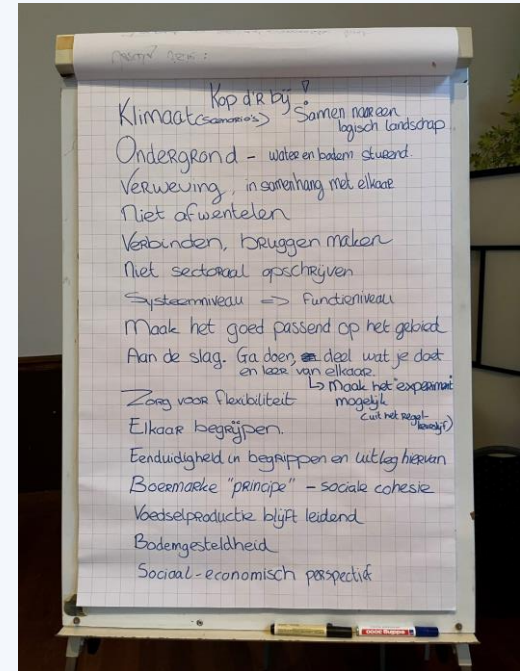 Kop d'R bij!
Klimaat (scenario's) Samen naar een
logisch landschap
Ondergrond - water en bodem sturend.
Verweving, in samenhang met elkaar
Niet afwentelen
Verbinden, bruggen maken
Niet sectoraal opschrijven
Systeemniveau => functieniveau
Maak het goed passend op het gebied
Aan de slag. Ga doen, deel wat je doet
en leer van elkaar.
↳ Maak het "experiment
Zorg voor flexibiliteit mogelijk
(uit het regel-
Elkaar begrijpen.
Eenduidigheid in begrippen en uitleg hiervan
Boermarke "principe" - sociale cohesie
Voedselproductie blijft leidend
Bodemgesteldheid
Sociaal-economisch perspectief
edding 3000